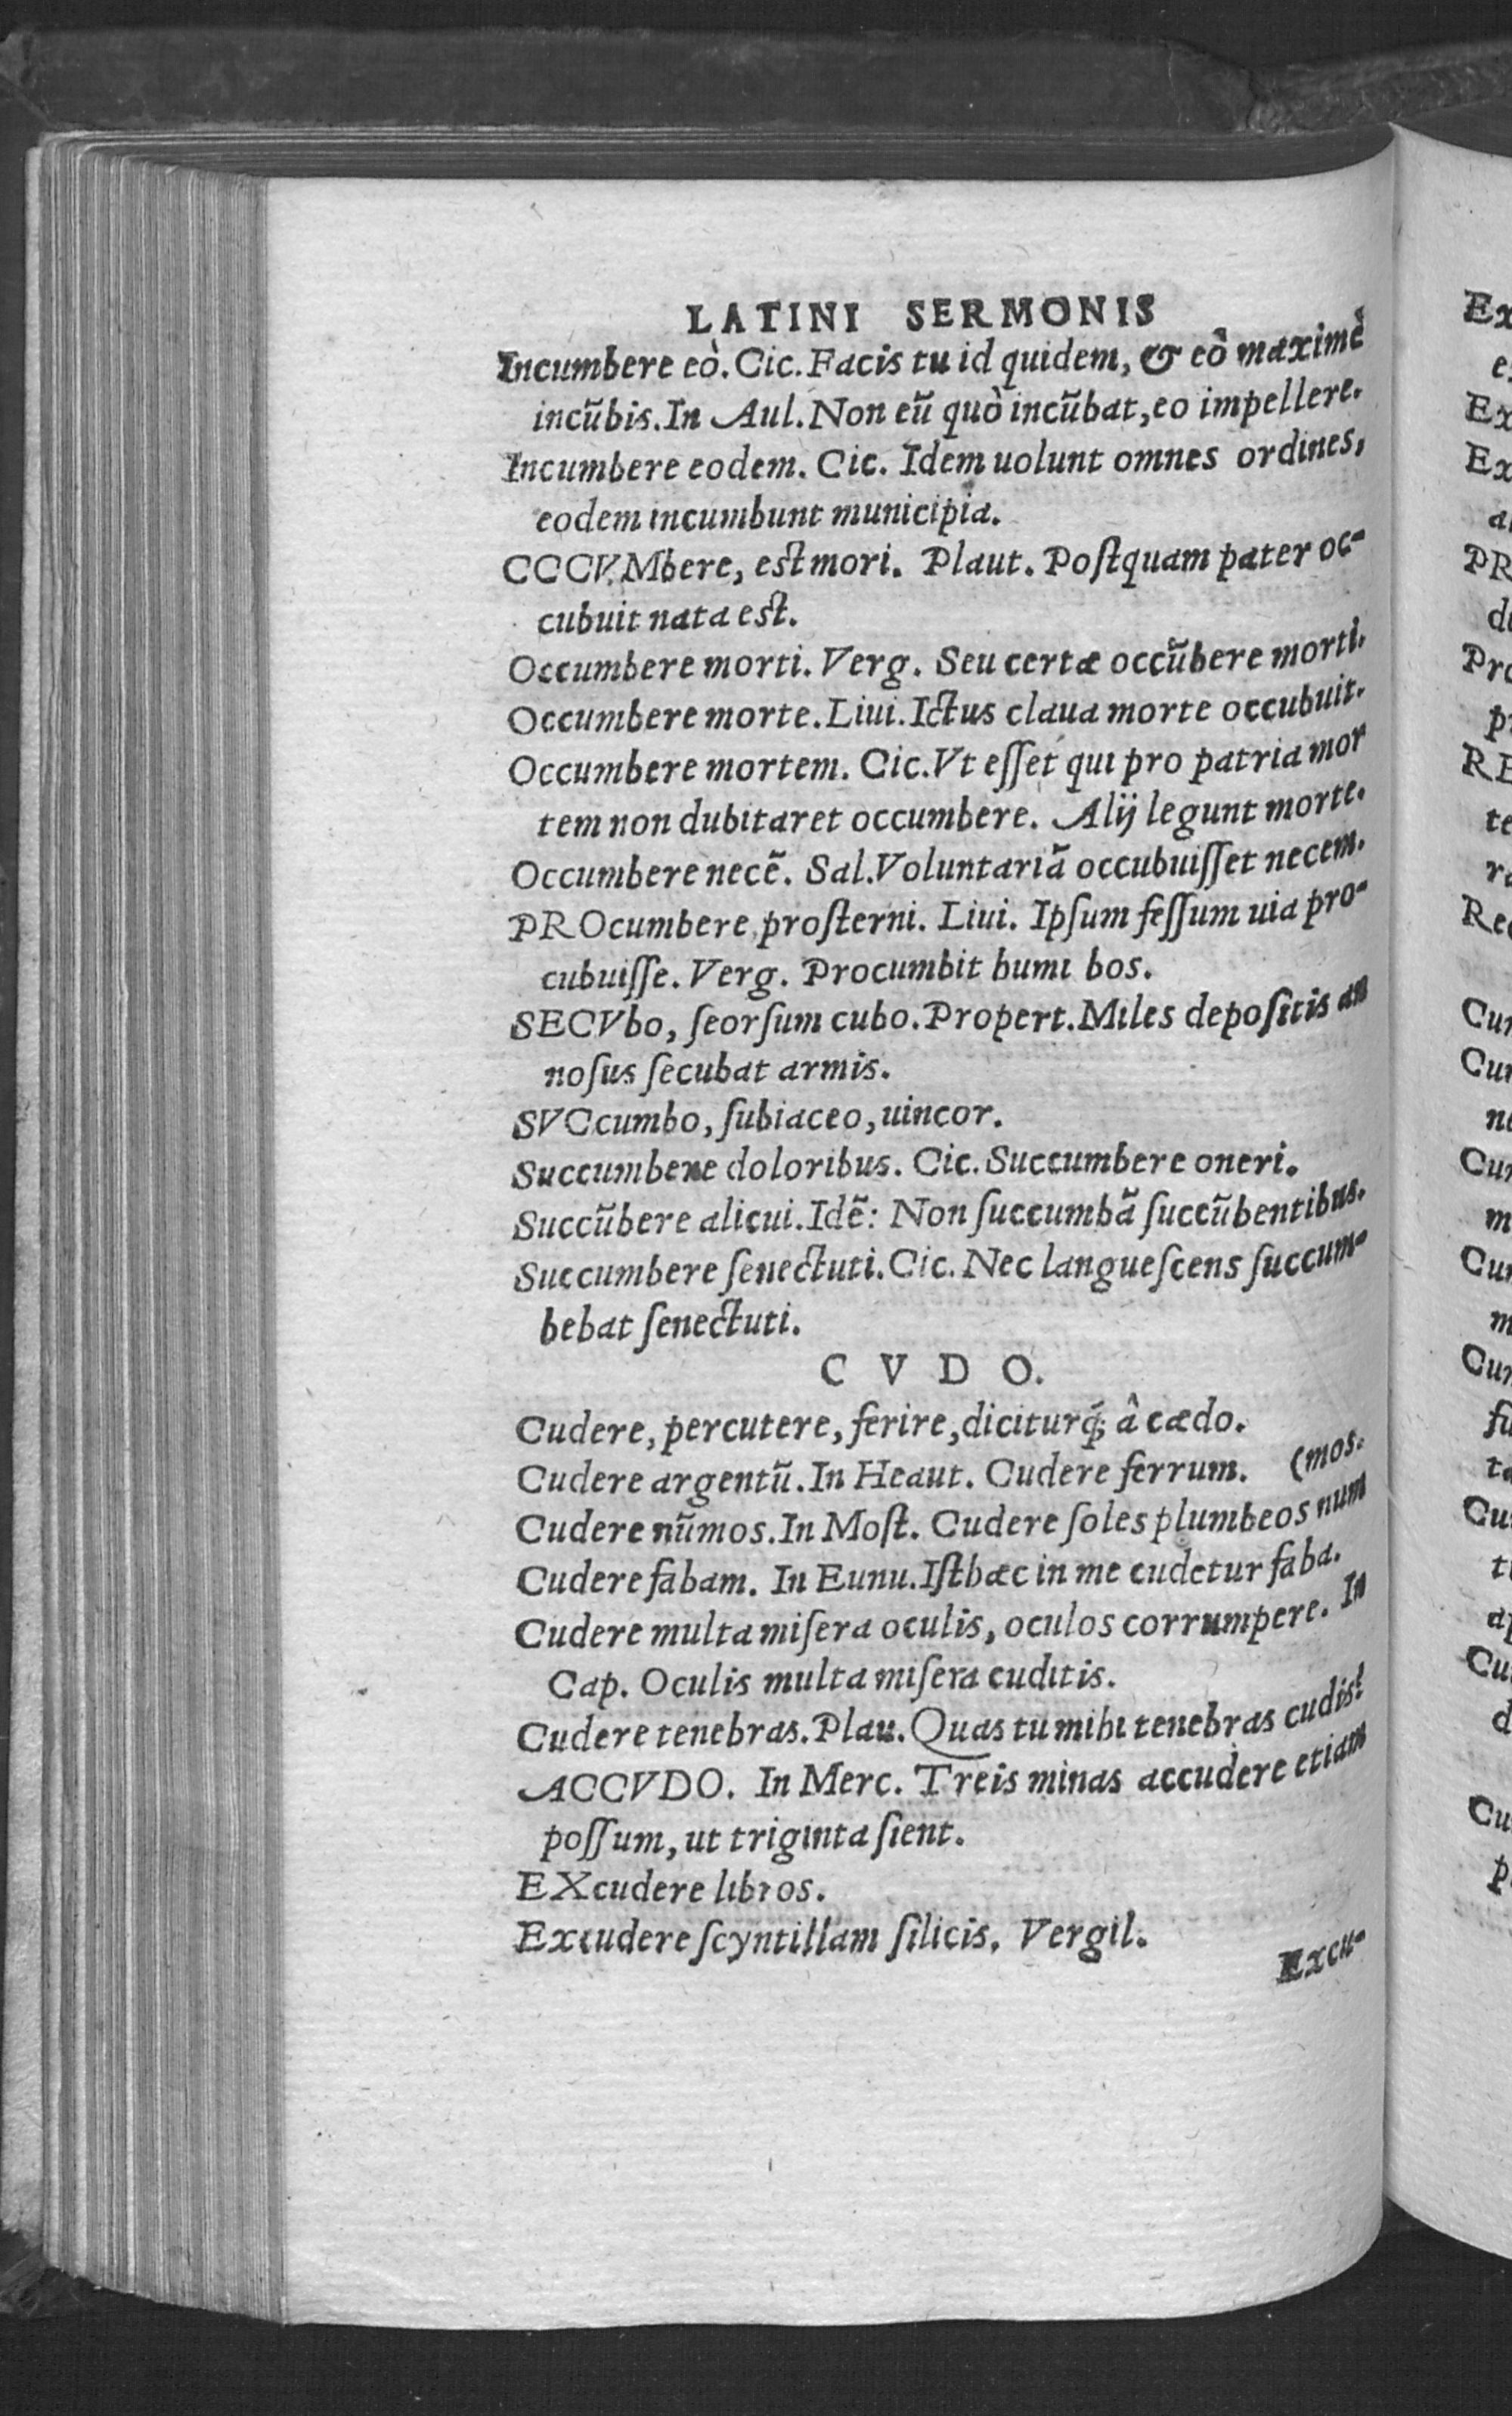 LATINI SERMONIS
Incumbere eò. Cic. Facis tu id quidem, & eô maximè
incũbis. In Aul. Non eũ quò incũbat, eo impellere.
Incumbere eodem. Cic. Idem uolunt omnes ordines,
eodem incumbunt municipia.
CCCVMbere, est mori. Plaut. Poſtquam pater oc-
cubuit nata est.
Occumbere morti. Verg. Seu certæ occũbere morti.
Occumbere morte. Liui. Ictus claua morte occubuit.
Occumbere mortem. Cic. Vt eſſet qui pro patria mor
tem non dubitaret occumbere. Alij legunt morte.
Occumbere necẽ. Sal. Voluntariã occubuiſſet necem.
PROcumbere, proſterni. Liui. Ipſum feſſum uia pro-
cubuiſſe. Verg. Procumbit humi bos.
SECVbo, ſeorſum cubo. Propert. Miles depoſitis an
noſus ſecubat armis.
SVCcumbo, ſubiaceo, uincor.
Succumbere doloribus. Cic. Succumbere oneri.
Succũbere alicui. Idẽ: Non ſuccumbã ſuccũbentibus.
Succumbere ſenectuti. Cic. Nec langueſcens ſuccum-
bebat ſenectuti.
CVDO.
Cudere, percutere, ferire, diciturq́; â cædo.
Cudere argentũ. In Heaut. Cudere ferrum. (mos.
Cudere nũmos. In Moſt. Cudere ſoles plumbeos num
Cudere fabam. In Eunu. Iſthæc in me cudetur faba.
Cudere multa miſera oculis, oculos corrumpere. In
Cap. Oculis multa miſera cuditis.
Cudere tenebras. Plau. Quas tu mihi tenebras cudis?
ACCVDO. In Merc. Treis minas accudere etiam
poſſum, ut triginta ſient.
EXcudere libros.
Excudere ſcyntillam ſilicis. Vergil.
Excu-